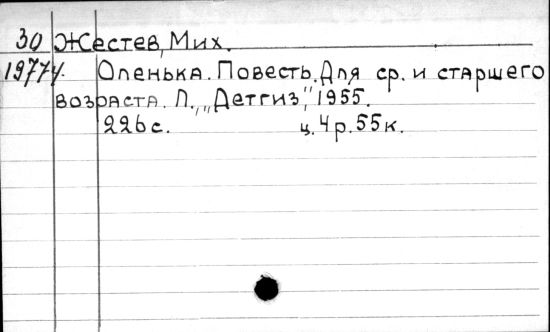 30 Жестев, Мих.
19774. Оленька. Повесть. Для ср. и старшего
возраста. Л., „Детгиз", 1955.
226 с. ц. 4 р. 55 к.